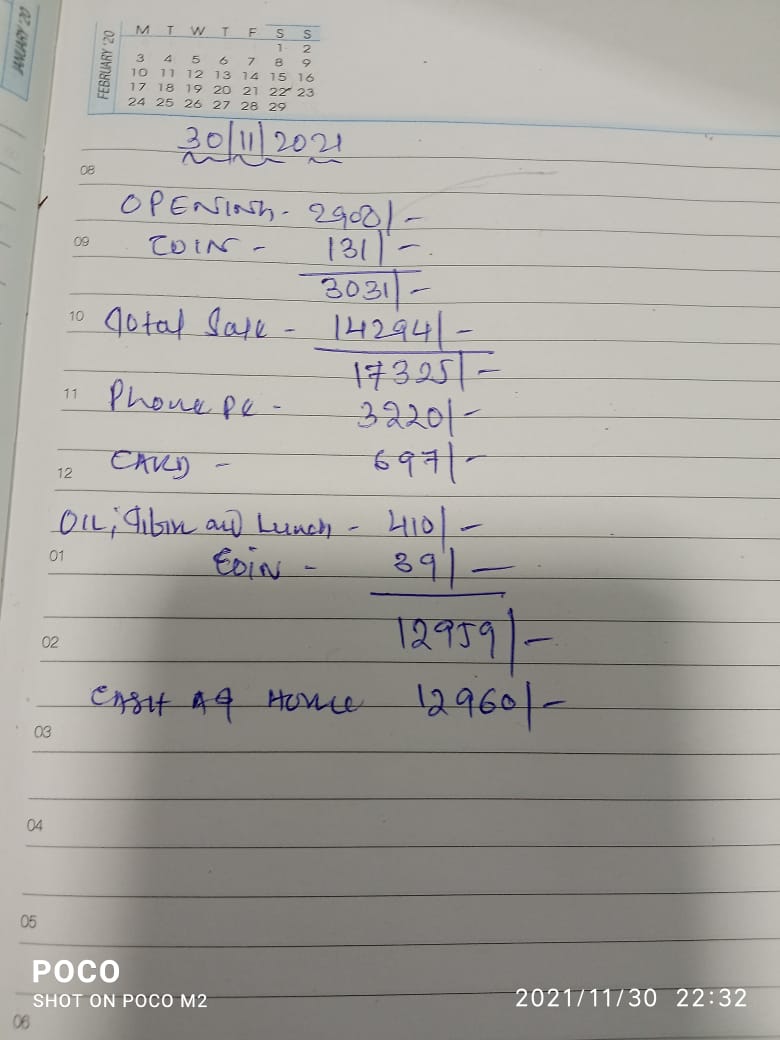 JANUARY '20
FEBRUARY '20
M T W T F S S
1 2
3 4 5 6 7 8 9
10 11 12 13 14 15 16
17 18 19 20 21 22 23
24 25 26 27 28 29
30/11/2021
08
OPENING - 2900/-
09 COIN - 131/-
3031/-
10 Total Sale - 14294/-
17325/-
11 Phone pe - 3220/-
12 CARD - 697/-
OIL, Tibin and Lunch - 410/-
01 COIN - 39/-
02 12959/-
CASH AT House 12960/-
03
04
05
POCO
SHOT ON POCO M2
2021/11/30 22:32
06